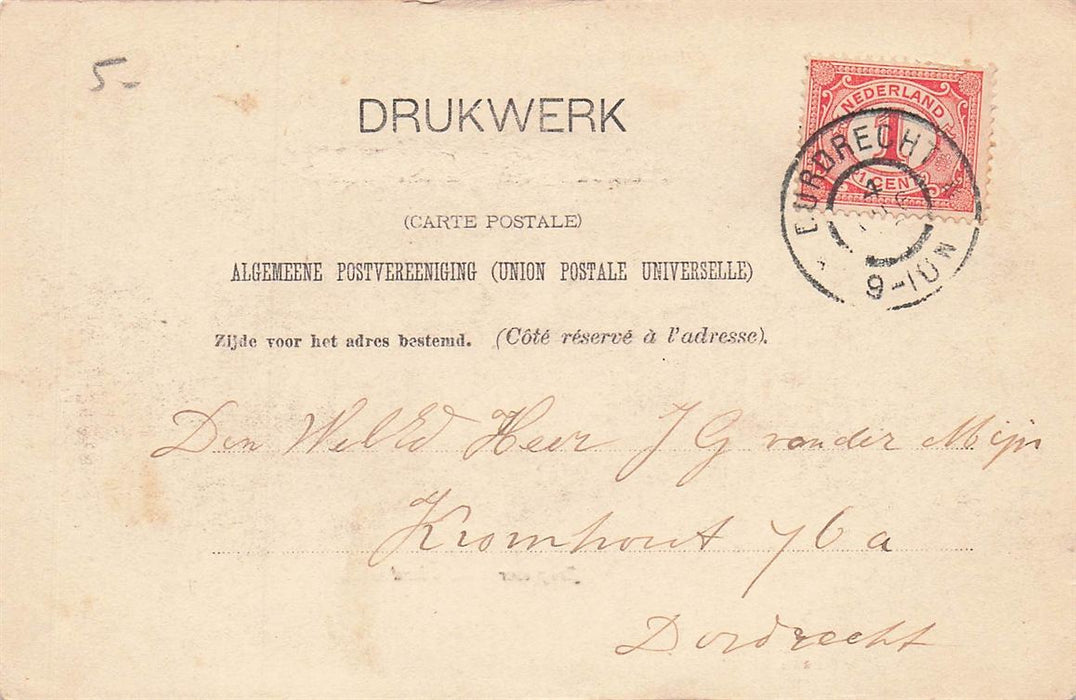 5-
DRUKWERK
NEDERLAND
1
1 CENT
DORDRECHT
4
9-10N
(CARTE POSTALE)
ALGEMEENE POSTVEREENIGING (UNION POSTALE UNIVERSELLE)
Zijde voor het adres bestemd. (Côté réservé à l'adresse).
Den WelEd Heer J G van der Mijn
Kromhout 76 a
Dordrecht